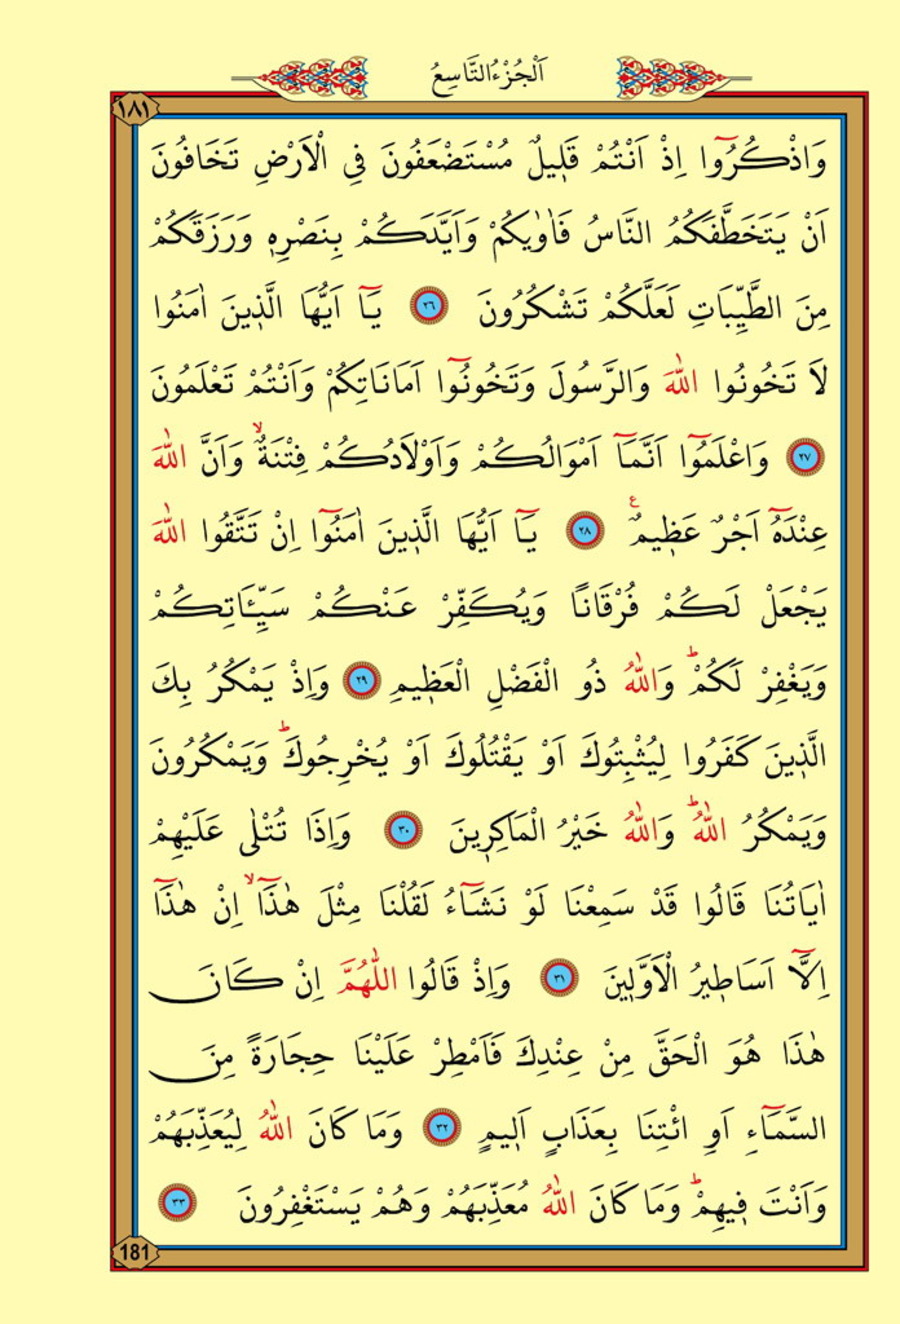 اَلْجُزْءُ التَّاسِعُ
١٨١
وَاذْكُرُٓوا اِذْ اَنْتُمْ قَل۪يلٌ مُسْتَضْعَفُونَ فِي الْاَرْضِ تَخَافُونَ
اَنْ يَتَخَطَّفَكُمُ النَّاسُ فَاٰوٰيكُمْ وَاَيَّدَكُمْ بِنَصْرِه۪ وَرَزَقَكُمْ
مِنَ الطَّيِّبَاتِ لَعَلَّكُمْ تَشْكُرُونَ ﴿٢٦﴾ يَٓا اَيُّهَا الَّذ۪ينَ اٰمَنُوا
لَا تَخُونُوا اللّٰهَ وَالرَّسُولَ وَتَخُونُٓوا اَمَانَاتِكُمْ وَاَنْتُمْ تَعْلَمُونَ
﴿٢٧﴾ وَاعْلَمُٓوا اَنَّمَٓا اَمْوَالُكُمْ وَاَوْلَادُكُمْ فِتْنَةٌۙ وَاَنَّ اللّٰهَ
عِنْدَهُٓ اَجْرٌ عَظ۪يمٌ۟ ﴿٢٨﴾ يَٓا اَيُّهَا الَّذ۪ينَ اٰمَنُٓوا اِنْ تَتَّقُوا اللّٰهَ
يَجْعَلْ لَكُمْ فُرْقَانًا وَيُكَفِّرْ عَنْكُمْ سَيِّـَٔاتِكُمْ
وَيَغْفِرْ لَكُمْۜ وَاللّٰهُ ذُو الْفَضْلِ الْعَظ۪يمِ ﴿٢٩﴾ وَاِذْ يَمْكُرُ بِكَ
الَّذ۪ينَ كَفَرُوا لِيُثْبِتُوكَ اَوْ يَقْتُلُوكَ اَوْ يُخْرِجُوكَۜ وَيَمْكُرُونَ
وَيَمْكُرُ اللّٰهُۜ وَاللّٰهُ خَيْرُ الْمَاكِر۪ينَ ﴿٣٠﴾ وَاِذَا تُتْلٰى عَلَيْهِمْ
اٰيَاتُنَا قَالُوا قَدْ سَمِعْنَا لَوْ نَشَٓاءُ لَقُلْنَا مِثْلَ هٰذَٓاۙ اِنْ هٰذَٓا
اِلَّٓا اَسَاط۪يرُ الْاَوَّل۪ينَ ﴿٣١﴾ وَاِذْ قَالُوا اللّٰهُمَّ اِنْ كَانَ
هٰذَا هُوَ الْحَقَّ مِنْ عِنْدِكَ فَاَمْطِرْ عَلَيْنَا حِجَارَةً مِنَ
السَّمَٓاءِ اَوِ ائْتِنَا بِعَذَابٍ اَل۪يمٍ ﴿٣٢﴾ وَمَا كَانَ اللّٰهُ لِيُعَذِّبَهُمْ
وَاَنْتَ ف۪يهِمْۜ وَمَا كَانَ اللّٰهُ مُعَذِّبَهُمْ وَهُمْ يَسْتَغْفِرُونَ ﴿٣٣﴾
181